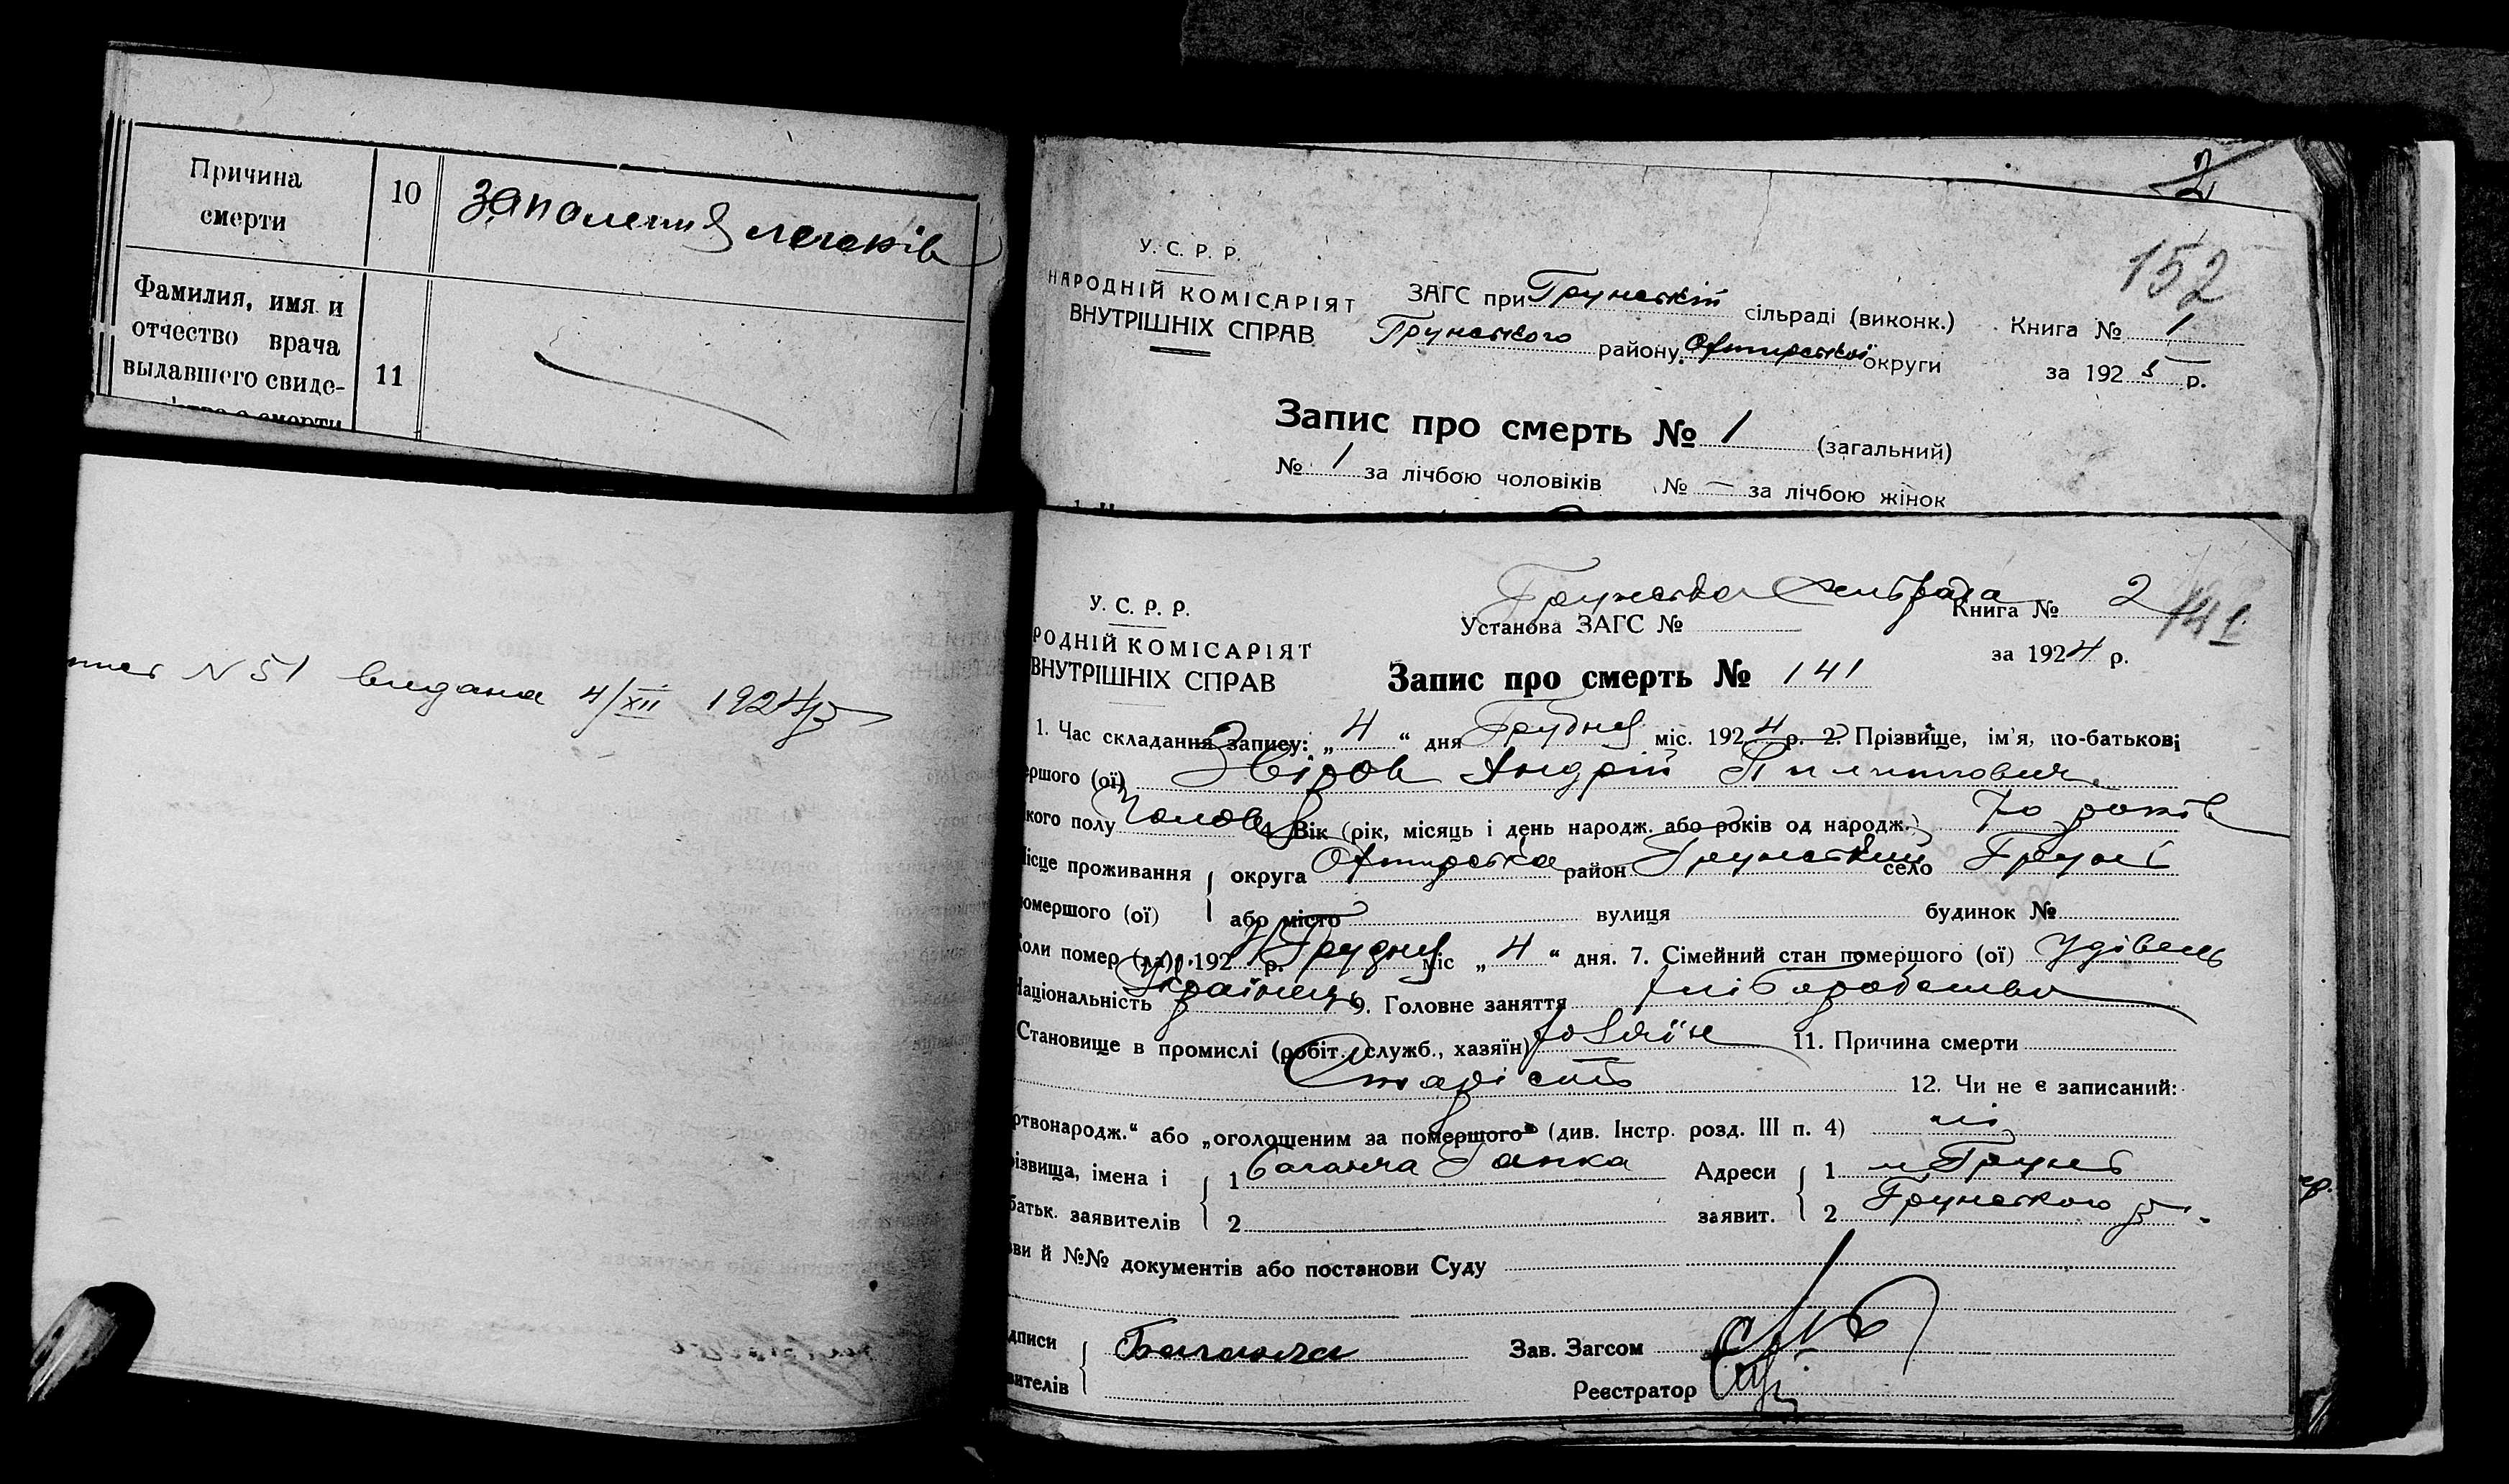 Причина
смерти
10
запалення легенів
Фамилия, имя и
отчество врача
выдавшего свиде-
11
N 51 видана 4/XII 1924 р
152
У. С. Р. Р.
НАРОДНІЙ КОМІСАРІЯТ
ВНУТРІШНІХ СПРАВ
ЗАГС при Грунській сільраді (виконк.)
Грунського району Охтирської округи
Книга № 1
за 1925 р.
Запис про смерть № 1 (загальний)
№ 1 за лічбою чоловіків № — за лічбою жінок
Грунська сельрада
У. С. Р. Р.
РОДНІЙ КОМІСАРІЯТ
ВНУТРІШНІХ СПРАВ
Установа ЗАГС №
Книга № 2
141
за 1924 р.
Запис про смерть № 141
1. Час складання запису: „ 4 “ дня Грудня міс. 1924 р. 2. Прізвище, ім'я, по-батькові
ершого (ої) Звіров Андрій Пилипович
кого полу Чолов Вік (рік, місяць і день народж. або років од народж.) 70 років
ісце проживання округа Охтирська район Грунський село Грунь
омершого (ої) або місто вулиця будинок №
оли помер (ла) 192 р. Грудня міс „ 4 “ дня. 7. Сімейний стан помершого (ої) Удівець
Національність Українець 9. Головне заняття хліборобство
Становище в промислі (робіт., служб., хазяїн) хозяїн 11. Причина смерти
Старість 12. Чи не є записаний:
ртвонародж.“ або „оголошеним за помершого“ (див. Інстр. розд. III п. 4) ні
ізвища, імена і 1 Ганка Адреси 1 м Грунь
батьк. заявителів 2 заявит. 2 Грунського р
ви й №№ документів або постанови Суду
дписи
вителів
Зав. Загсом
Реєстратор